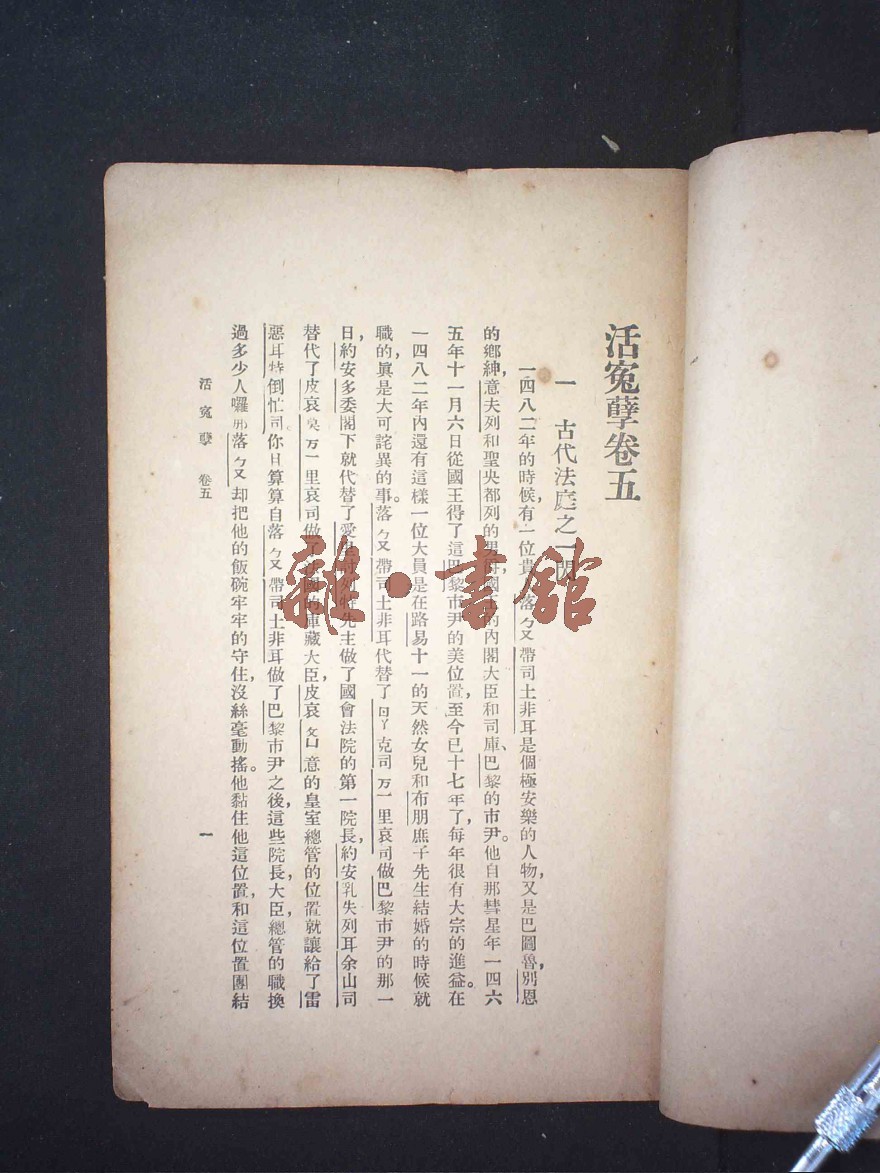 活寃孽卷五
一 古代法庭之一
一四八二年的時候,有一位貴 落ㄅㄡ帶司土非耳是個極安樂的人物,又是巴圖魯,別恩
的鄉紳,意夫列和聖央都列的男 國 的內閣大臣和司庫、巴黎的市尹。他自那彗星年一四六
五年十一月六日從國王得了這巴黎市尹的美位置,至今已十七年了,每年很有大宗的進益。在
一四八二年內還有這樣一位大員是在路易十一的天然女兒和布朋庶子先生結婚的時候就
職的,眞是大可詫異的事。落ㄅㄡ帶司土非耳代替了 ㄚ克司万一里哀司做巴黎市尹的那一
日,約安多委閣下就代替了愛 列特先生做了國會法院的第一院長,約安乳失列耳余山司
替代了皮哀奐万一里哀司做了法國的庫藏大臣,皮哀 意的皇室總管的位置就讓給了雷
惡耳特倒忙司。你且算算自落ㄅㄡ帶司土非耳做了巴黎市尹之後,這些院長,大臣,總管的職換
過多少人囉!那落ㄅㄡ却把他的飯碗牢牢的守住,沒絲毫動搖。他黏住他這位置,和這位置團結
活寃孽 卷五
一
雜·書館